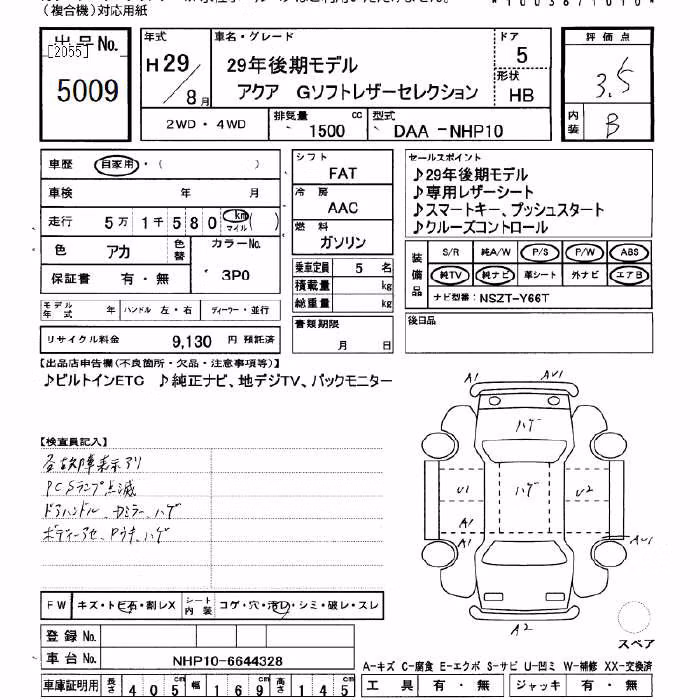 （複合機）対応用紙
出品No.
[2055]
5009
年式
H29/8月
車名・グレード
29年後期モデル
アクア　Gソフトレザーセレクション
ドア
5
形状
HB
評価点
3.5
内装
B
2WD・4WD
排気量
1500 cc
型式
DAA-NHP10
車歴 自家用・（　　　）
車検　年　月
走行 5万1千580 km マイル（　）
色 アカ 色替
カラーNo.
3P0
保証書 有・無
モデル年式　年 ハンドル 左・右 ディーラー・並行
リサイクル料金 9,130 円 預託済
シフト
FAT
冷房
AAC
燃料
ガソリン
乗車定員 5 名
積載量 kg
総重量 kg
書類期限
月　日
セールスポイント
♪29年後期モデル
♪専用レザーシート
♪スマートキー、プッシュスタート
♪クルーズコントロール
装備品
S/R 純A/W P/S P/W ABS
純TV 純ナビ 革シート 外ナビ エアB
ナビ型番: NSZT-Y66T
後日品
【出品店申告欄(不良箇所・欠品・注意事項等)】
♪ビルトインETC　♪純正ナビ、地デジTV、バックモニター
【検査員記入】
各故障表示アリ
PCSランプ点滅
ドアハンドル、カミラー、ハゲ
ボディーアセ、ハゲ
A1 AU1
ハゲ
U1 ハゲ U2
A1
A1 AU1
A2
スペア
FW キズ・トビ石・割レX シート内装 コゲ・穴・汚レ・シミ・破レ・スレ
登録No.
車台No. NHP10-6644328
車庫証明用 長さ 405cm 幅 169cm 高さ 145cm
A-キズ C-腐食 E-エクボ S-サビ U-凹ミ W-補修 XX-交換済
工具 有・無 ジャッキ 有・無